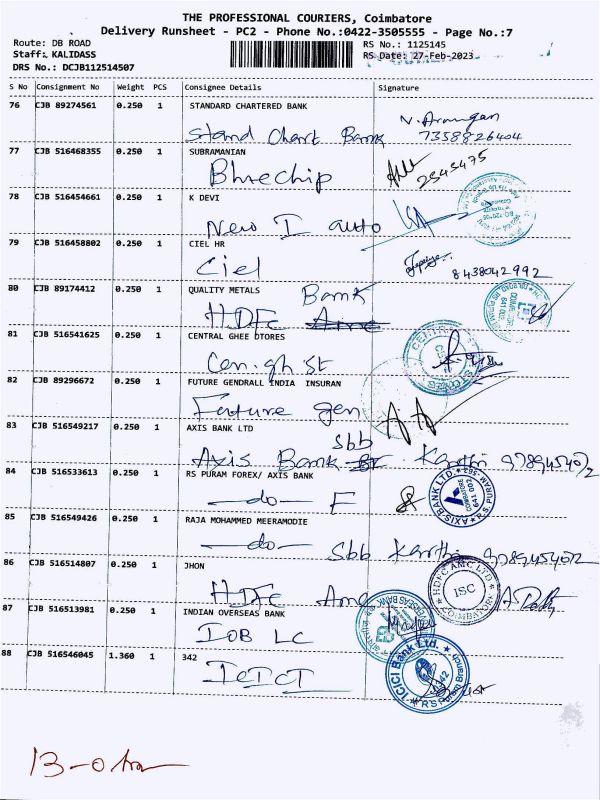 THE PROFESSIONAL COURIERS, Coimbatore
Delivery Runsheet - PC2 - Phone No.:0422-3505555 - Page No.:7
Route: DB ROAD
RS No.: 1125145
Staff: KALIDASS
RS Date: 27-Feb-2023
DRS No.: DCJB112514507
S No Consignment No Weight PCS Consignee Details Signature
76 CJB 89274561 0.250 1 STANDARD CHARTERED BANK
Stand Chart Bank
7358826404
77 CJB 516468355 0.250 1 SUBRAMANIAN
Bluechip
2545475
78 CJB 516454661 0.250 1 K DEVI
New I auto
79 CJB 516458802 0.250 1 CIEL HR
Ciel
8438042992
80 CJB 89174412 0.250 1 QUALITY METALS
HDFC Bank
81 CJB 516541625 0.250 1 CENTRAL GHEE DTORES
Cen.gh st
82 CJB 89296672 0.250 1 FUTURE GENDRALL INDIA INSURAN
Future gen
83 CJB 516549217 0.250 1 AXIS BANK LTD
Sbb
Axis Bank Karthi 9789454072
84 CJB 516533613 0.250 1 RS PURAM FOREX/ AXIS BANK
—do— F
AXIS BANK LTD R.S. PURAM 641 002
85 CJB 516549426 0.250 1 RAJA MOHAMMED MEERAMODIE
—do— Sbb Karthi 9789454072
86 CJB 516514807 0.250 1 JHON
HDFC Amc
HDFC AMC LTD ISC COIMBATORE
87 CJB 516513981 0.250 1 INDIAN OVERSEAS BANK
IOB LC
88 CJB 516546045 1.360 1 342
ICICI
ICICI Bank Ltd. R S Puram Branch